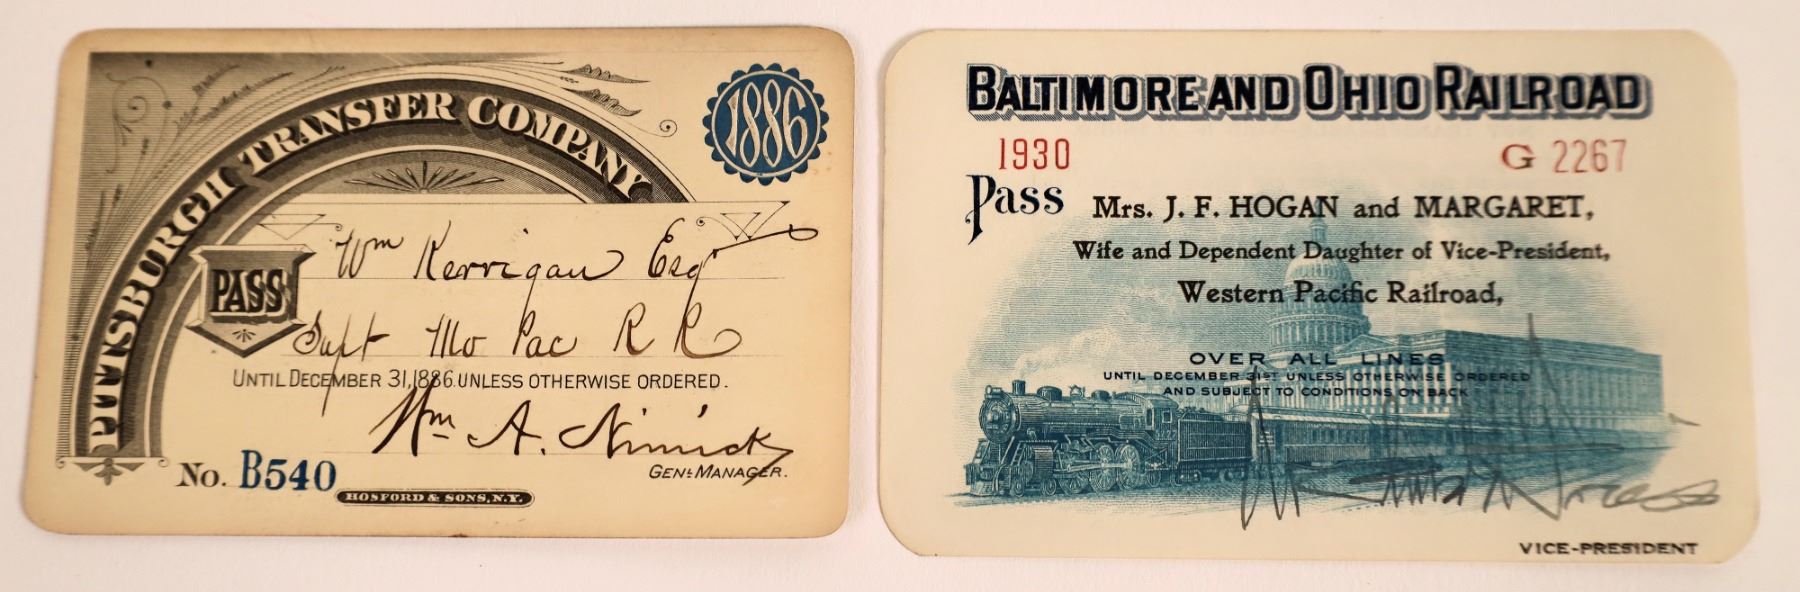 PITTSBURGH TRANSFER COMPANY
1886
PASS
Wm Kerrigan Esqr
Supt Mo Pac R R
UNTIL DECEMBER 31, 1886. UNLESS OTHERWISE ORDERED.
Wm A. Nimick
GENL MANAGER.
No. B540
HOSFORD & SONS, N.Y.
BALTIMORE AND OHIO RAILROAD
1930 G 2267
Pass Mrs. J. F. HOGAN and MARGARET,
Wife and Dependent Daughter of Vice-President,
Western Pacific Railroad,
OVER ALL LINES
UNTIL DECEMBER 31ST UNLESS OTHERWISE ORDERED
AND SUBJECT TO CONDITIONS ON BACK
VICE-PRESIDENT